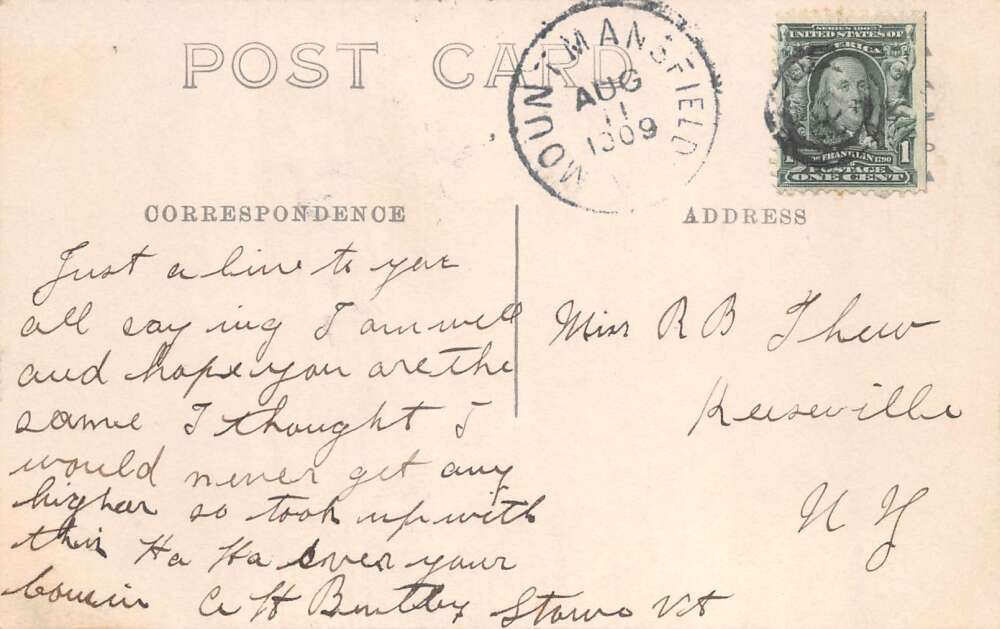 POST CARD
MOUNT MANSFIELD
AUG
11
1909
SERIES 1902
UNITED STATES OF
ERICA
FRANKLIN 1790
POSTAGE
1
ONE CENT
CORRESPONDENCE
Just a line to you
all saying I am well
and hope you are the
same I thought I
would never get any
higher so took up with
this Ha Ha ever your
cousin C H Bentley Stowe Vt
ADDRESS
Miss R B Thew
Keeseville
N Y